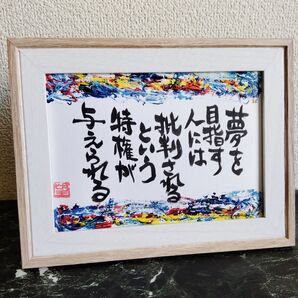 夢を
目指す
人には
批判される
という
特権が
与えられる